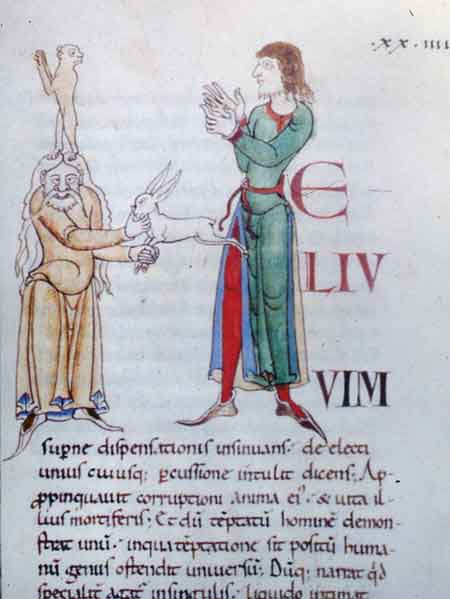 ·xx·iiii
E
LIV
VIM
supne dispensationis insinuans· de electi
unius cuiusq; pcussione intulit dicens; Ap-
ppinquavit corruptioni anima ei'· & uita il-
lius mortiferis; Et dū tēptatū hominē demon-
strat unū· inqua tēptatione sit positū huma-
nū genus ostendit universū· Dūq; narrat qd
specialit agat insingulis· liquido intimat